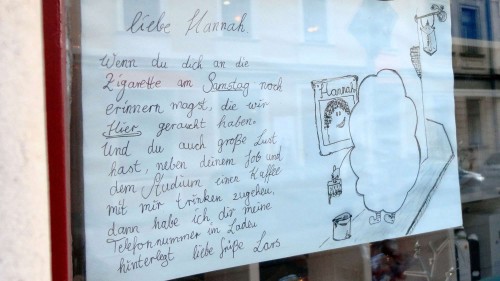 liebe Hannah.
Wenn du dich an die
Zigarette am Samstag noch
erinnern magst, die wir
Hier geraucht haben.
Und du auch große Lust
hast, neben deinem Job und
dem Studium einen Kaffee
mit mir trinken zugehen,
dann habe ich dir meine
Telefonnummer im Laden
hinterlegt liebe Grüße Lars
Hannah